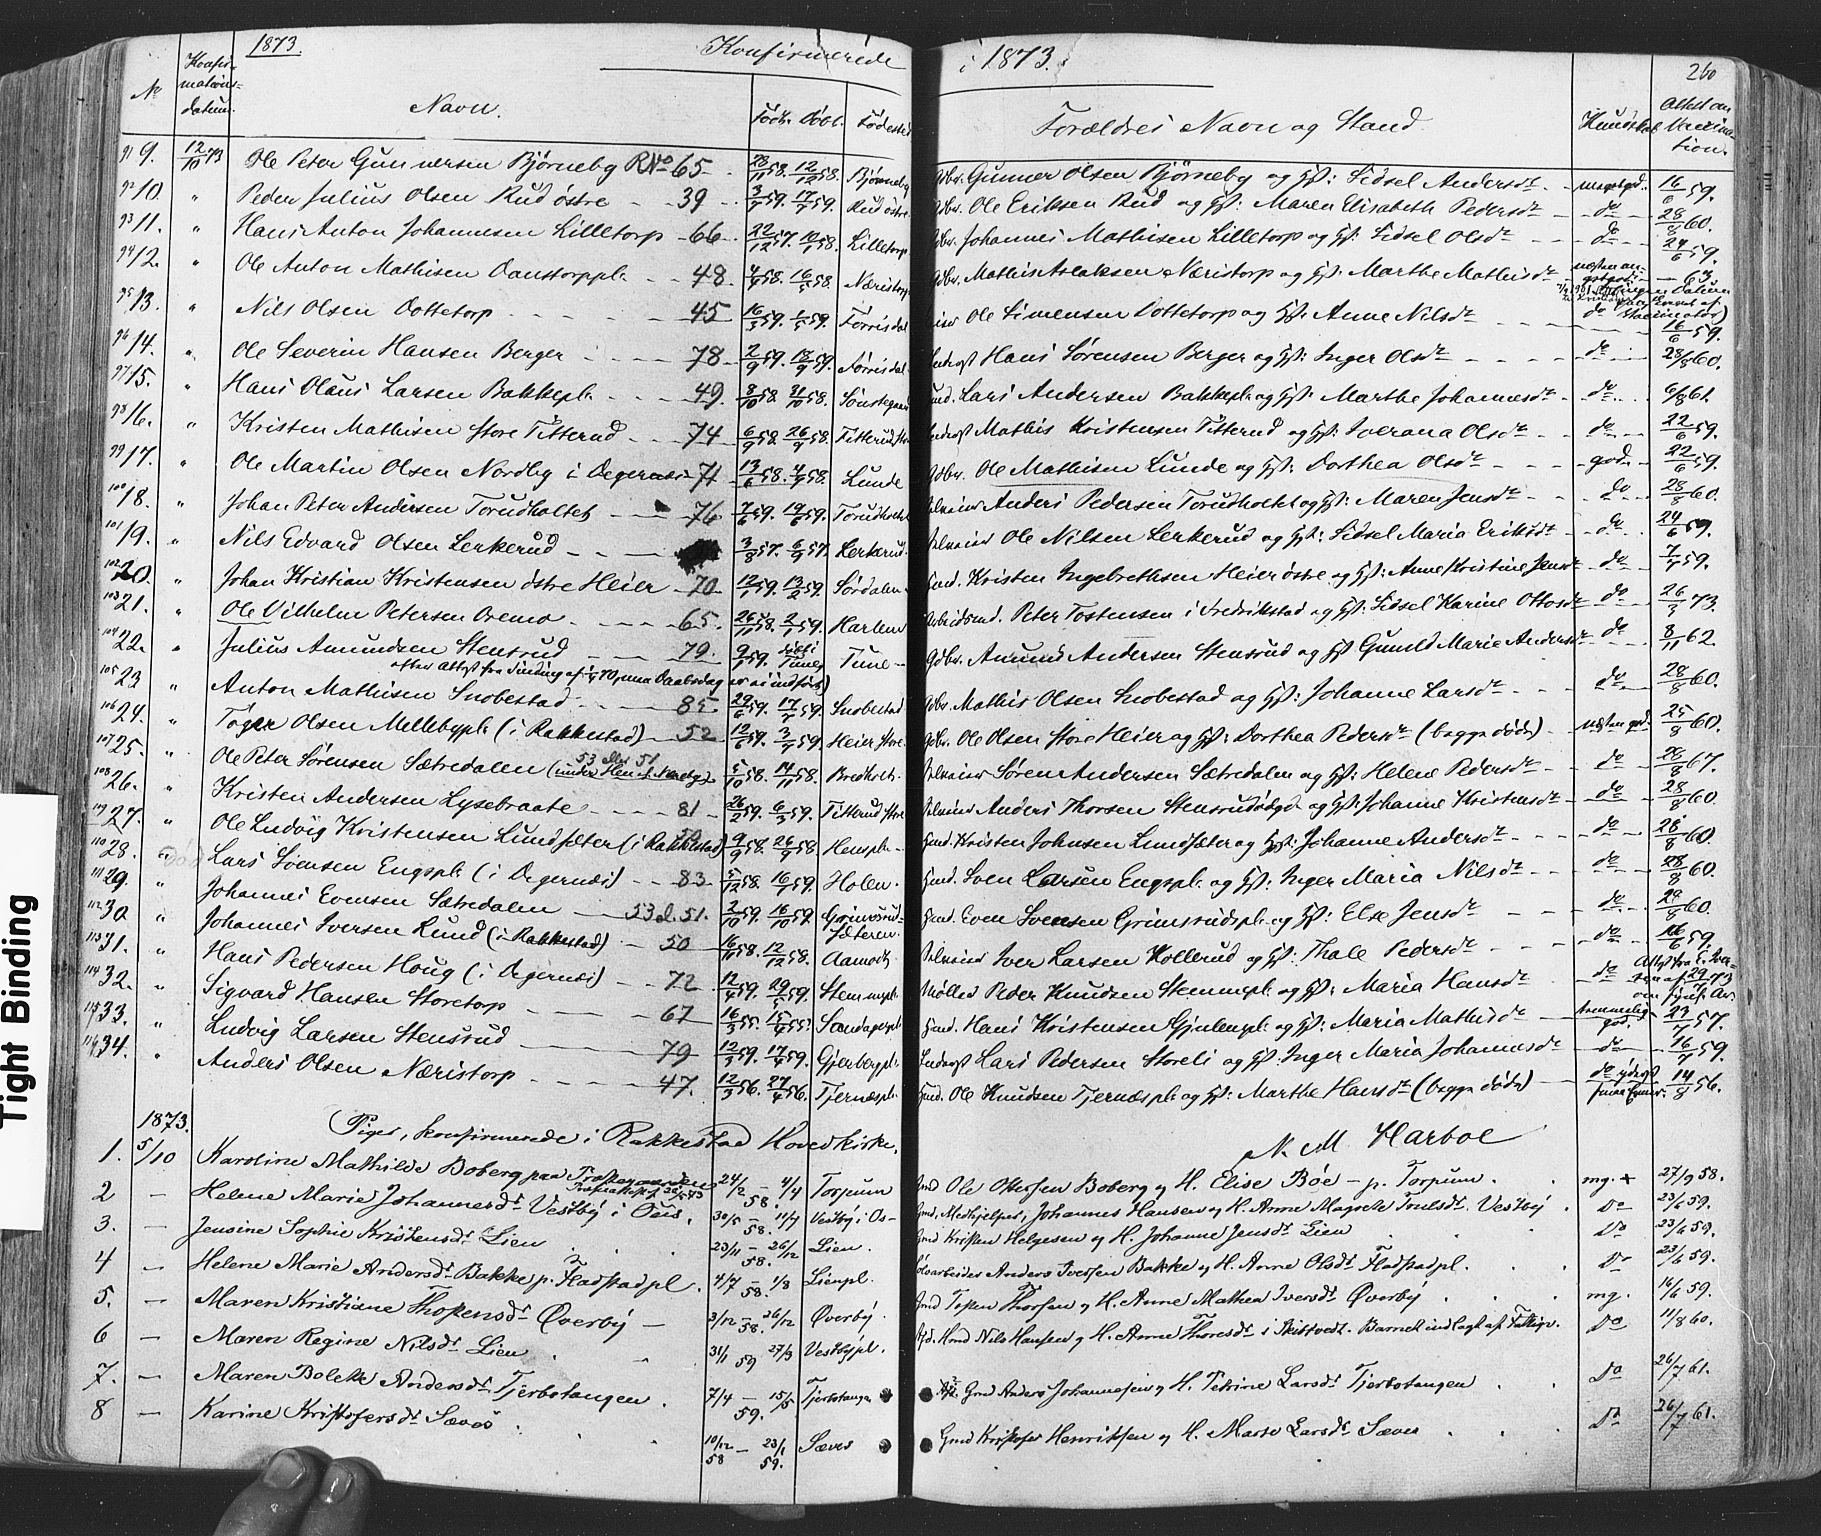 1873.
Konfirmerede i 1873.
260
No Konfirmationsdatum. Navn. Født. Døbt. Fødested Forældres Navn og Stand. Kundskab Attest om Vaccination.
91 9. 12/10 73 Ole Peter Gunnersen Bjørneby RNo 65 28/11 58. 12/12 58. Bjørneby Gdbr. Gunner Olsen Bjørneby og Hst: Sidsel Andersdr meget god. 16/6 59.
92 10. " Peder Julius Olsen Rud østre 39 3/5 59. 17/7 59. Rud østre Gdbr. Ole Eriksen Rud og Hst: Maren Elisabeth Pedersdr do 28/8 60.
93 11. " Hans Anton Johannesen Lilletorp 66 22/12 57. 10/1 58. Lilletorp Gdbr. Johannes Mathisen Lilletorp og Hst: Sidsel Olsdr do 24/6 59.
94 12. " Ole Anton Mathisen Aanstorppl. 48. 4/4 58. 16/5 58. Næristorp Gdbr. Mathis Aslaksen Næristorp og Hst: Marthe Mathisdr næsten 63
95 13. " Nils Olsen Dottetorp 45 16/3 59. 1/5 59. Torrisdal Ole Simensen Dottetorp og Hst: Anne Nilsdr do 16/6 59.
96 14. " Ole Severin Hansen Berger 78 2/9 59. 18/9 59. Tørrisdal Hans Sørensen Berger og Hst: Inger Olsdr do 28/8 60.
97 15. " Hans Olaus Larsen Bakkepl. 49. 8/10 58. 31/10 58. Sønstegaard Lars Andersen Bakkepl. og Hst: Marthe Johannesdr do 6/8 61.
98 16. " Kristen Mathisen store Titterud 74 6/9 58. 26/9 58. Titterud store Mathis Kristensen Titterud og Hst: Iverana Olsdr do 22/6 59.
99 17. " Ole Martin Olsen Nordby i Degernæs 71 13/6 58. 4/7 58. Lunde Gdbr. Ole Mathisen Lunde og Hst: Dorthea Olsdr god 22/6 59.
100 18. " Johan Peter Andersen Torudholtet 76 7/6 59. 19/6 59. Torudholtet Selveier Anders Pedersen Torudholtet og Hst: Maren Jensdr do 28/8 60.
101 19. " Nils Edvard Olsen Lerkerud 3/8 57. 6/9 57. Lerkerud Selveier Ole Nilsen Lerkerud og Hst: Sidsel Maria Eriksdr do 24/6 59.
102 20. " Johan Kristian Kristensen østre Heier 70 12/1 59. 13/2 59. Sørdalen Hmd. Kristen Ingebrethsen Heier østre og Hst: Anne Kristine Jensdr do 7/7 59.
103 21. " Ole Vilhelm Petersen Oremo 65. 26/11 58. 2/1 59. Harlem Arbeidsmd. Peter Tostensen i Fredrikstad og Hst: Sidsel Karine Ottosdr do 26/3 73.
104 22. " Julius Amundsen Stensrud 79. 9/1 59. Tune Gdbr. Amund Andersen Stensrud og Hst Gunild Marie Andersdr do 8/11 62.
105 23 " Anton Mathisen Snobestad 85 29/6 59. 17/7 59. Snobestad Gdbr. Mathis Olsen Snobestad og Hst: Johanne Larsdr do 28/8 60.
106 24. " Tøger Olsen Mellebypl. (i Rakkestad) 52 12/6 59. 3/7 59. Heier store Gdbr. Ole Olsen store Heier og Hst: Dorthea Pedersdr (begge døde) næsten god. 25/8 60.
107 25. " Ole Peter Sørensen Sætredalen 53 eller 51 5/10 58. 14/11 58. Bredholt Selveier Søren Andersen Sætredalen og Hst: Helene Pedersdr do 28/8 67.
108 26. " Kristen Andersen Lysebraate 81 26/2 59. 6/3 59. Titterud store Selveier Anders Thorsen Stensrudødeg. og Hst: Johanne Kristensdr do 28/8 60.
109 27. " Ole Ludvig Kristensen Lundsæter (i Rakkestad) 50 9/9 58. 26/9 58. Henspl. Hmd. Kristen Johnsen Lundsæter og Hst: Johanne Andersdr do 28/8 60.
110 28. " Lars Svensen Engspl. (i Degernæs) 83 5/12 58. 16/1 59. Holen. Hmd. Sven Larsen Engspl. og Hst: Inger Maria Nilsdr do 28/8 60.
111 29. " Johannes Evensen Sætredalen 53 el. 51. 2/10 59. 16/10 59. Grimsrudsæteren Hmd. Even Svensen Grimsrudspl. og Hst: Else Jensdr do 28/8 60.
112 30 " Johannes Iversen Lund (i Rakkestad) 50 16/11 58. 12/12 58. Aamodt Selveier Iver Larsen Kollerud og Hst: Thale Pedersdr do 16/6 59.
113 31. " Hans Pedersen Houg (i Degernæs) 72 12/4 59. 29/5 59. Stemmepl. Møller Peder Knudsen Stemmepl. og Hst: Maria Hansdr do
114 32. " Sigvard Hansen Storetorp 67 16/3 55. 15/4 55. Sandagerpl. Hmd. Hans Kristensen Gjulempl. og Hst: Maria Mathisdr temmelig god. 23/7 57.
115 33. " Ludvig Larsen Stensrud 79 12/3 59. 17/4 59. Gjerbergpl. Lars Pedersen Storeli og Hst: Inger Maria Johannesdr do 16/7 59.
116 34. " Anders Olsen Næristorp 47. 12/3 56. 27/4 56. Tjernæspl. Hmd. Ole Knudsen Tjernæspl. og Hst: Marthe Hansdr (begge døde) do yderst smaa Evner. 14/8 56.
1873. Piger, konfirmerede i Rakkestad Hovedkirke. N. M. Harboe
1. 5/10 Karoline Mathilde Boberg paa Træskegaarden 24/2 – 4/4 58. Torpum Gmd Ole Ottersen Boberg og H. Elise Bøe – p. Torpum. mg. + 27/9 58.
2 — Helene Marie Johannesdr Vestby i Øus. 30/5 – 11/7 58. Vestby i Os Gmd. Medhjelper, Johannes Hansen og H. Anne Magrete Trulsdr. Vestby Do 23/6 59.
3. — Jensine Sophie Kristensdr Lien 23/11 – 26/12 58. Lien. Gmd Kristen Helgesen og H. Johanne Jensdr Lien Do 23/6 59.
4 — Helene Marie Andersdr Bakke p. Fladstadpl. 4/7 – 1/8 58. Lienpl. Anders Iversen Bakke og H. Anne Olsdr Fladstadpl. Do 23/6 59.
5. — Maren Kristiane Thostensdr Øverby 3/12 – 26/12 58. Øverby. Gmd Tosten Thorsen og H. Anne Mathea Iversdr Øverby mg. 16/6 59.
6 — Maren Regine Nilsdr Lien 31/1 59 27/3 Vestbypl. Hmd Nils Hansen og H. Anne Thoresdr i Skistvedt. Barnet indlagt af Fattigv. Do 11/8 60.
7. — Maren Bolette Andersdr Tjerbotangen 7/4 – 15/5 59. Tjerbotangen Gmd Anders Johannesen og H. Petrine Larsdr Tjerbotangen Do 26/7 61.
8 — Karine Kristofersdr Sæves 10/12 58 – 23/1 59. Sæves Gmd Kristofer Henriksen og H. Marte Larsdr Sæves Do 26/7 61.
Tight Binding